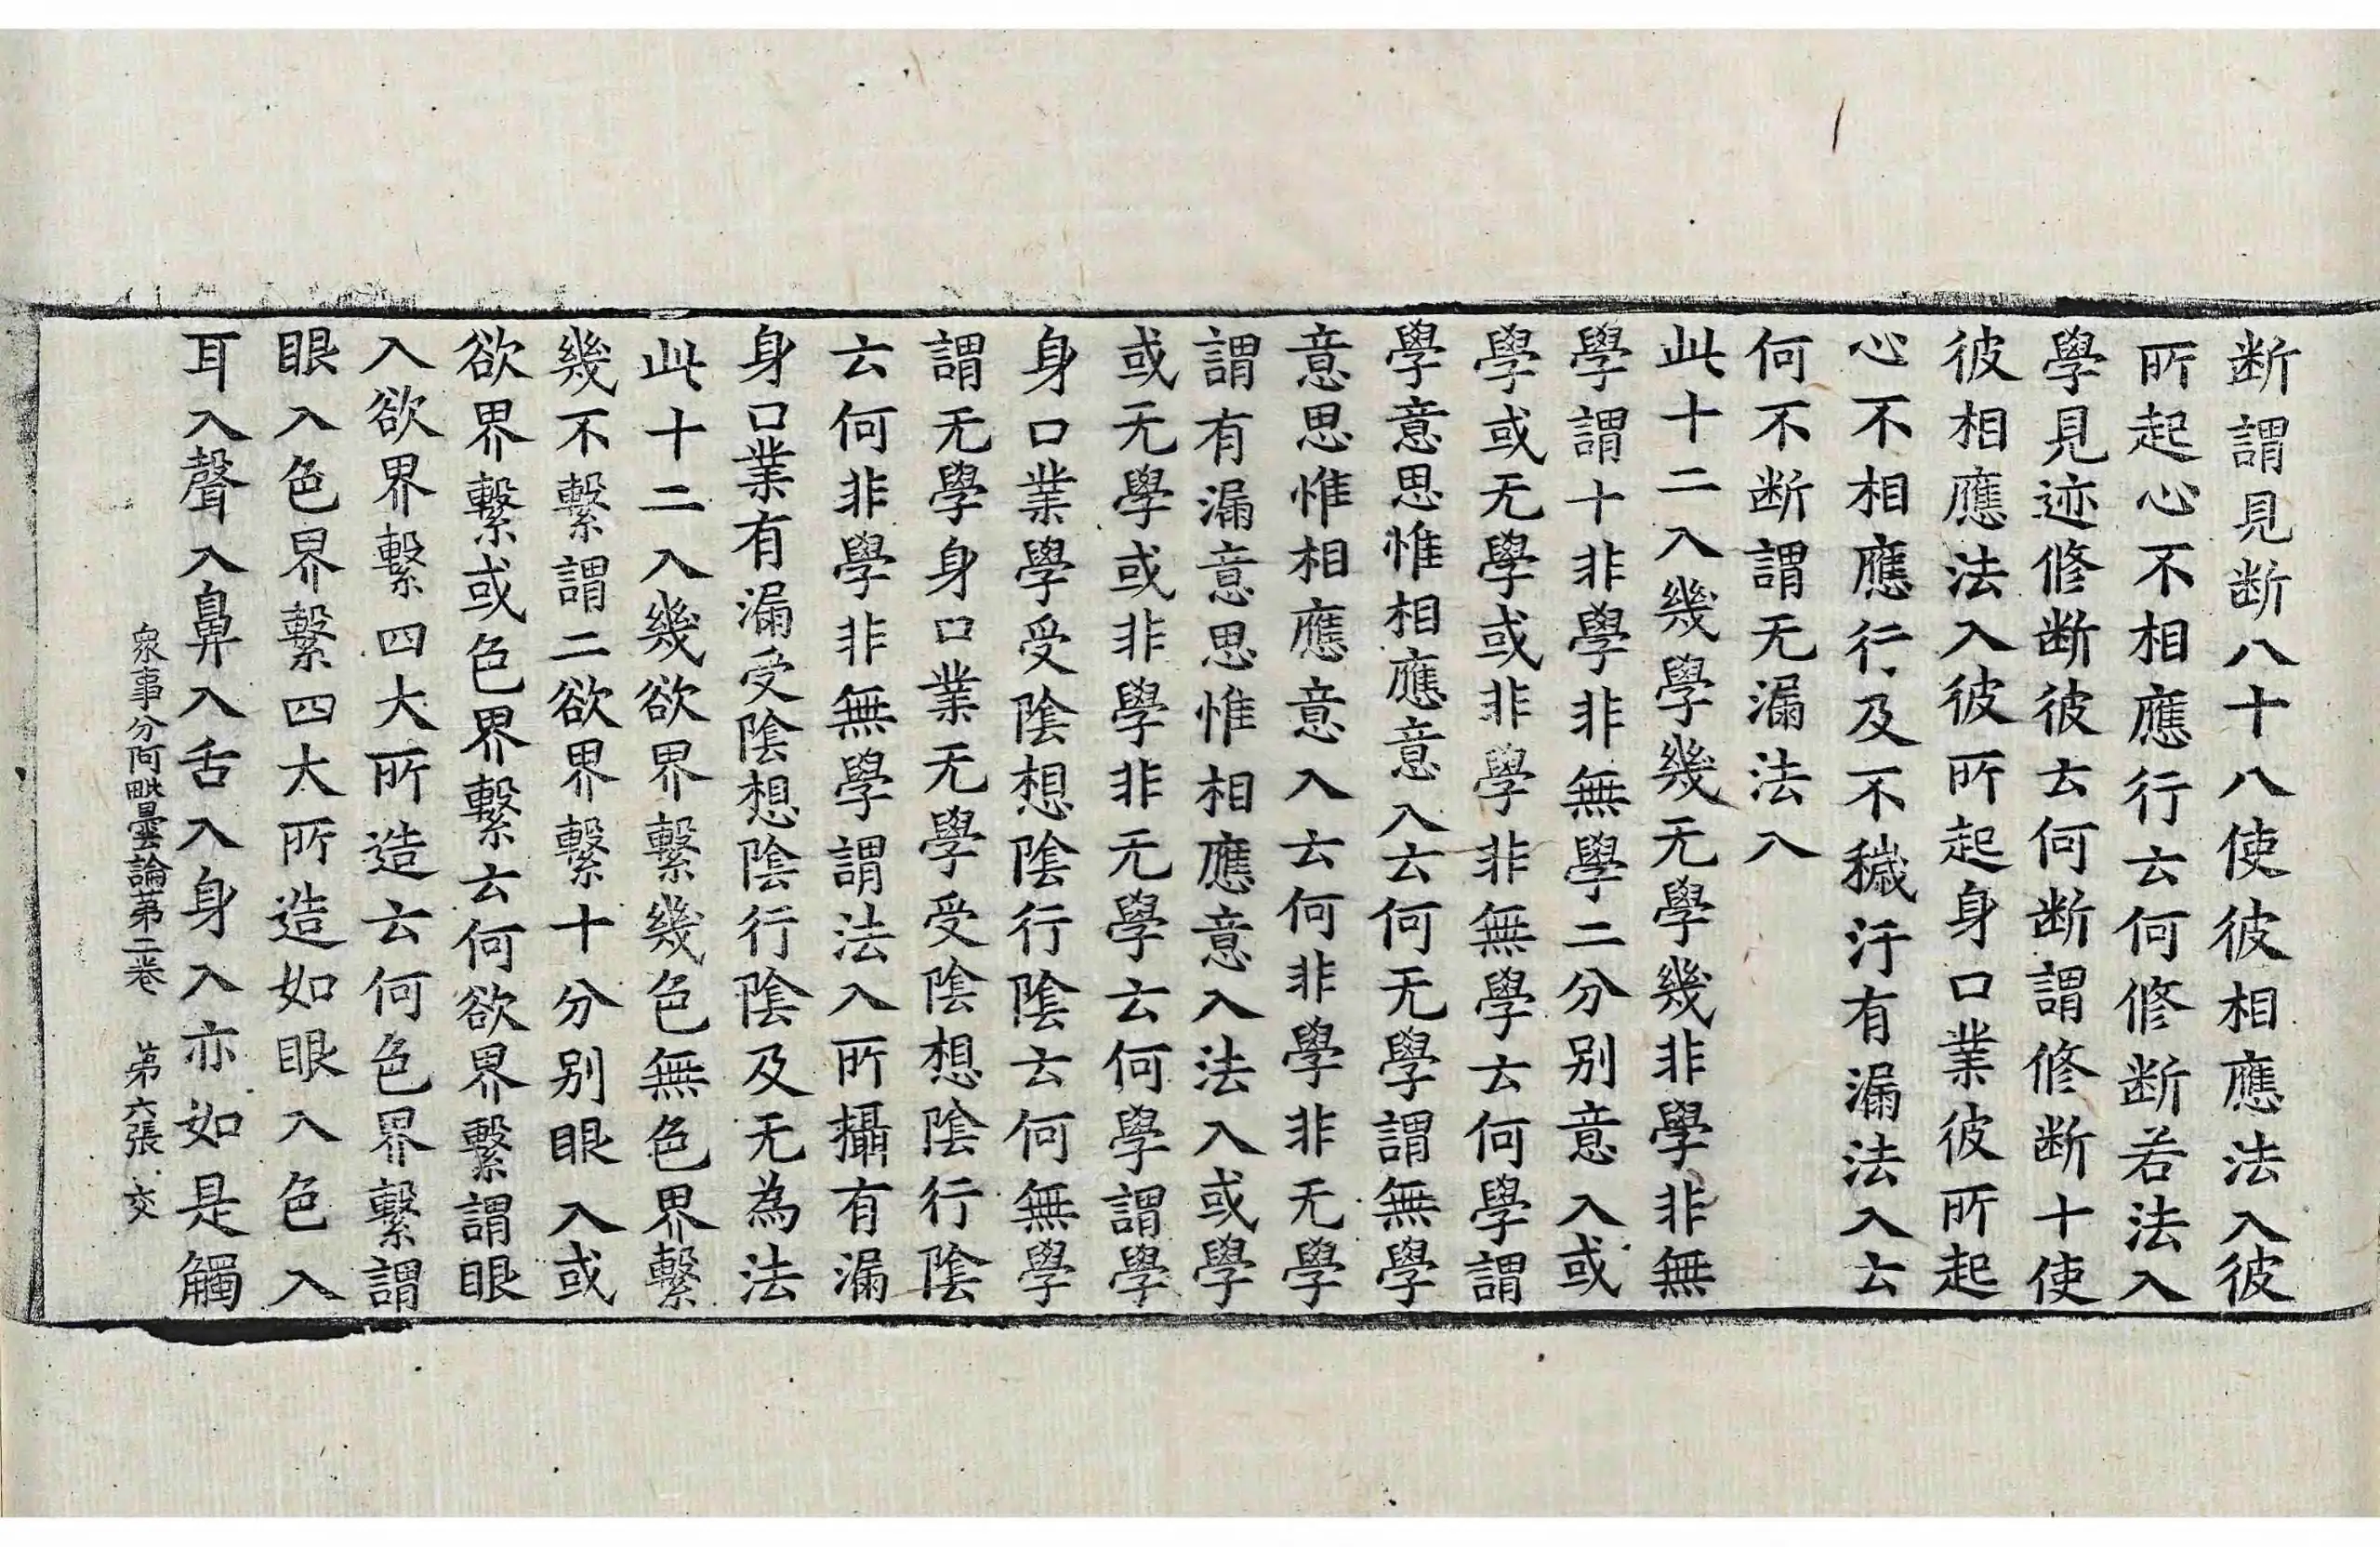 断謂見断八十八使彼相應法入彼
所起心不相應行云何修断若法入
學見迹修断彼云何断謂修断十使
彼相應法入彼所起身口業彼所起
心不相應行及不穢汙有漏法入云
何不断謂无漏法入
此十二入幾學幾无學幾非學非無
學謂十非學非無學二分别意入或
學或无學或非學非無學云何學謂
學意思惟相應意入云何无學謂無學
意思惟相應意入云何非學非无學
謂有漏意思惟相應意入法入或學
或无學或非學非无學云何學謂學
身口業學受陰想陰行陰云何無學
謂无學身口業无學受陰想陰行陰
云何非學非無學謂法入所攝有漏
身口業有漏受陰想陰行陰及无為法
此十二入幾欲界繫幾色無色界繫
幾不繫謂二欲界繫十分别眼入或
欲界繫或色界繫云何欲界繫謂眼
入欲界繫四大所造云何色界繫謂
眼入色界繫四大所造如眼入色入
耳入聲入鼻入舌入身入亦如是觸
衆事分阿毗曇論苐二卷 苐六張 交